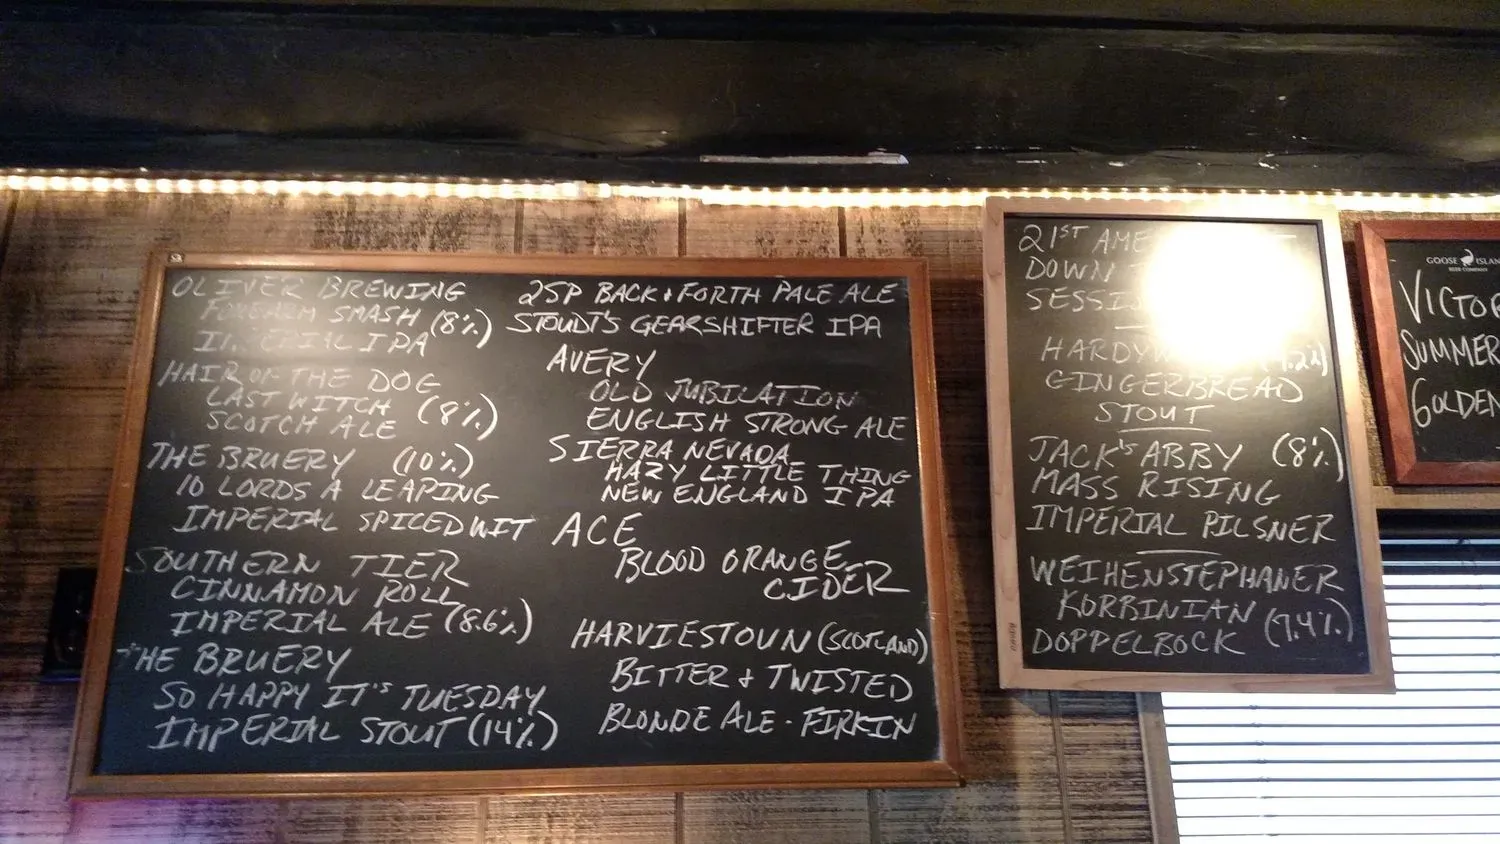 OLIVER BREWING
FOREARM SMASH (8%)
IMPERIAL IPA
HAIR OF THE DOG
LAST WITCH (8%)
SCOTCH ALE
THE BRUERY (10%)
10 LORDS A LEAPING
IMPERIAL SPICED WIT
SOUTHERN TIER
CINNAMON ROLL
IMPERIAL ALE (8.6%)
THE BRUERY
SO HAPPY IT'S TUESDAY
IMPERIAL STOUT (14%)
2SP BACK & FORTH PALE ALE
STOUDT'S GEARSHIFTER IPA
AVERY
OLD JUBILATION
ENGLISH STRONG ALE
SIERRA NEVADA
HAZY LITTLE THING
NEW ENGLAND IPA
ACE
BLOOD ORANGE
CIDER
HARVIESTOUN (SCOTLAND)
BITTER & TWISTED
BLONDE ALE - FIRKIN
21ST
DOWN
GINGERBREAD
STOUT
JACK'S ABBY (8%)
MASS RISING
IMPERIAL PILSNER
WEIHENSTEPHANER
KORBINIAN (7.4%)
DOPPELBOCK
GOOSE ISLAN
BEER COMPANY
VICTO
SUMMER
GOLDEN